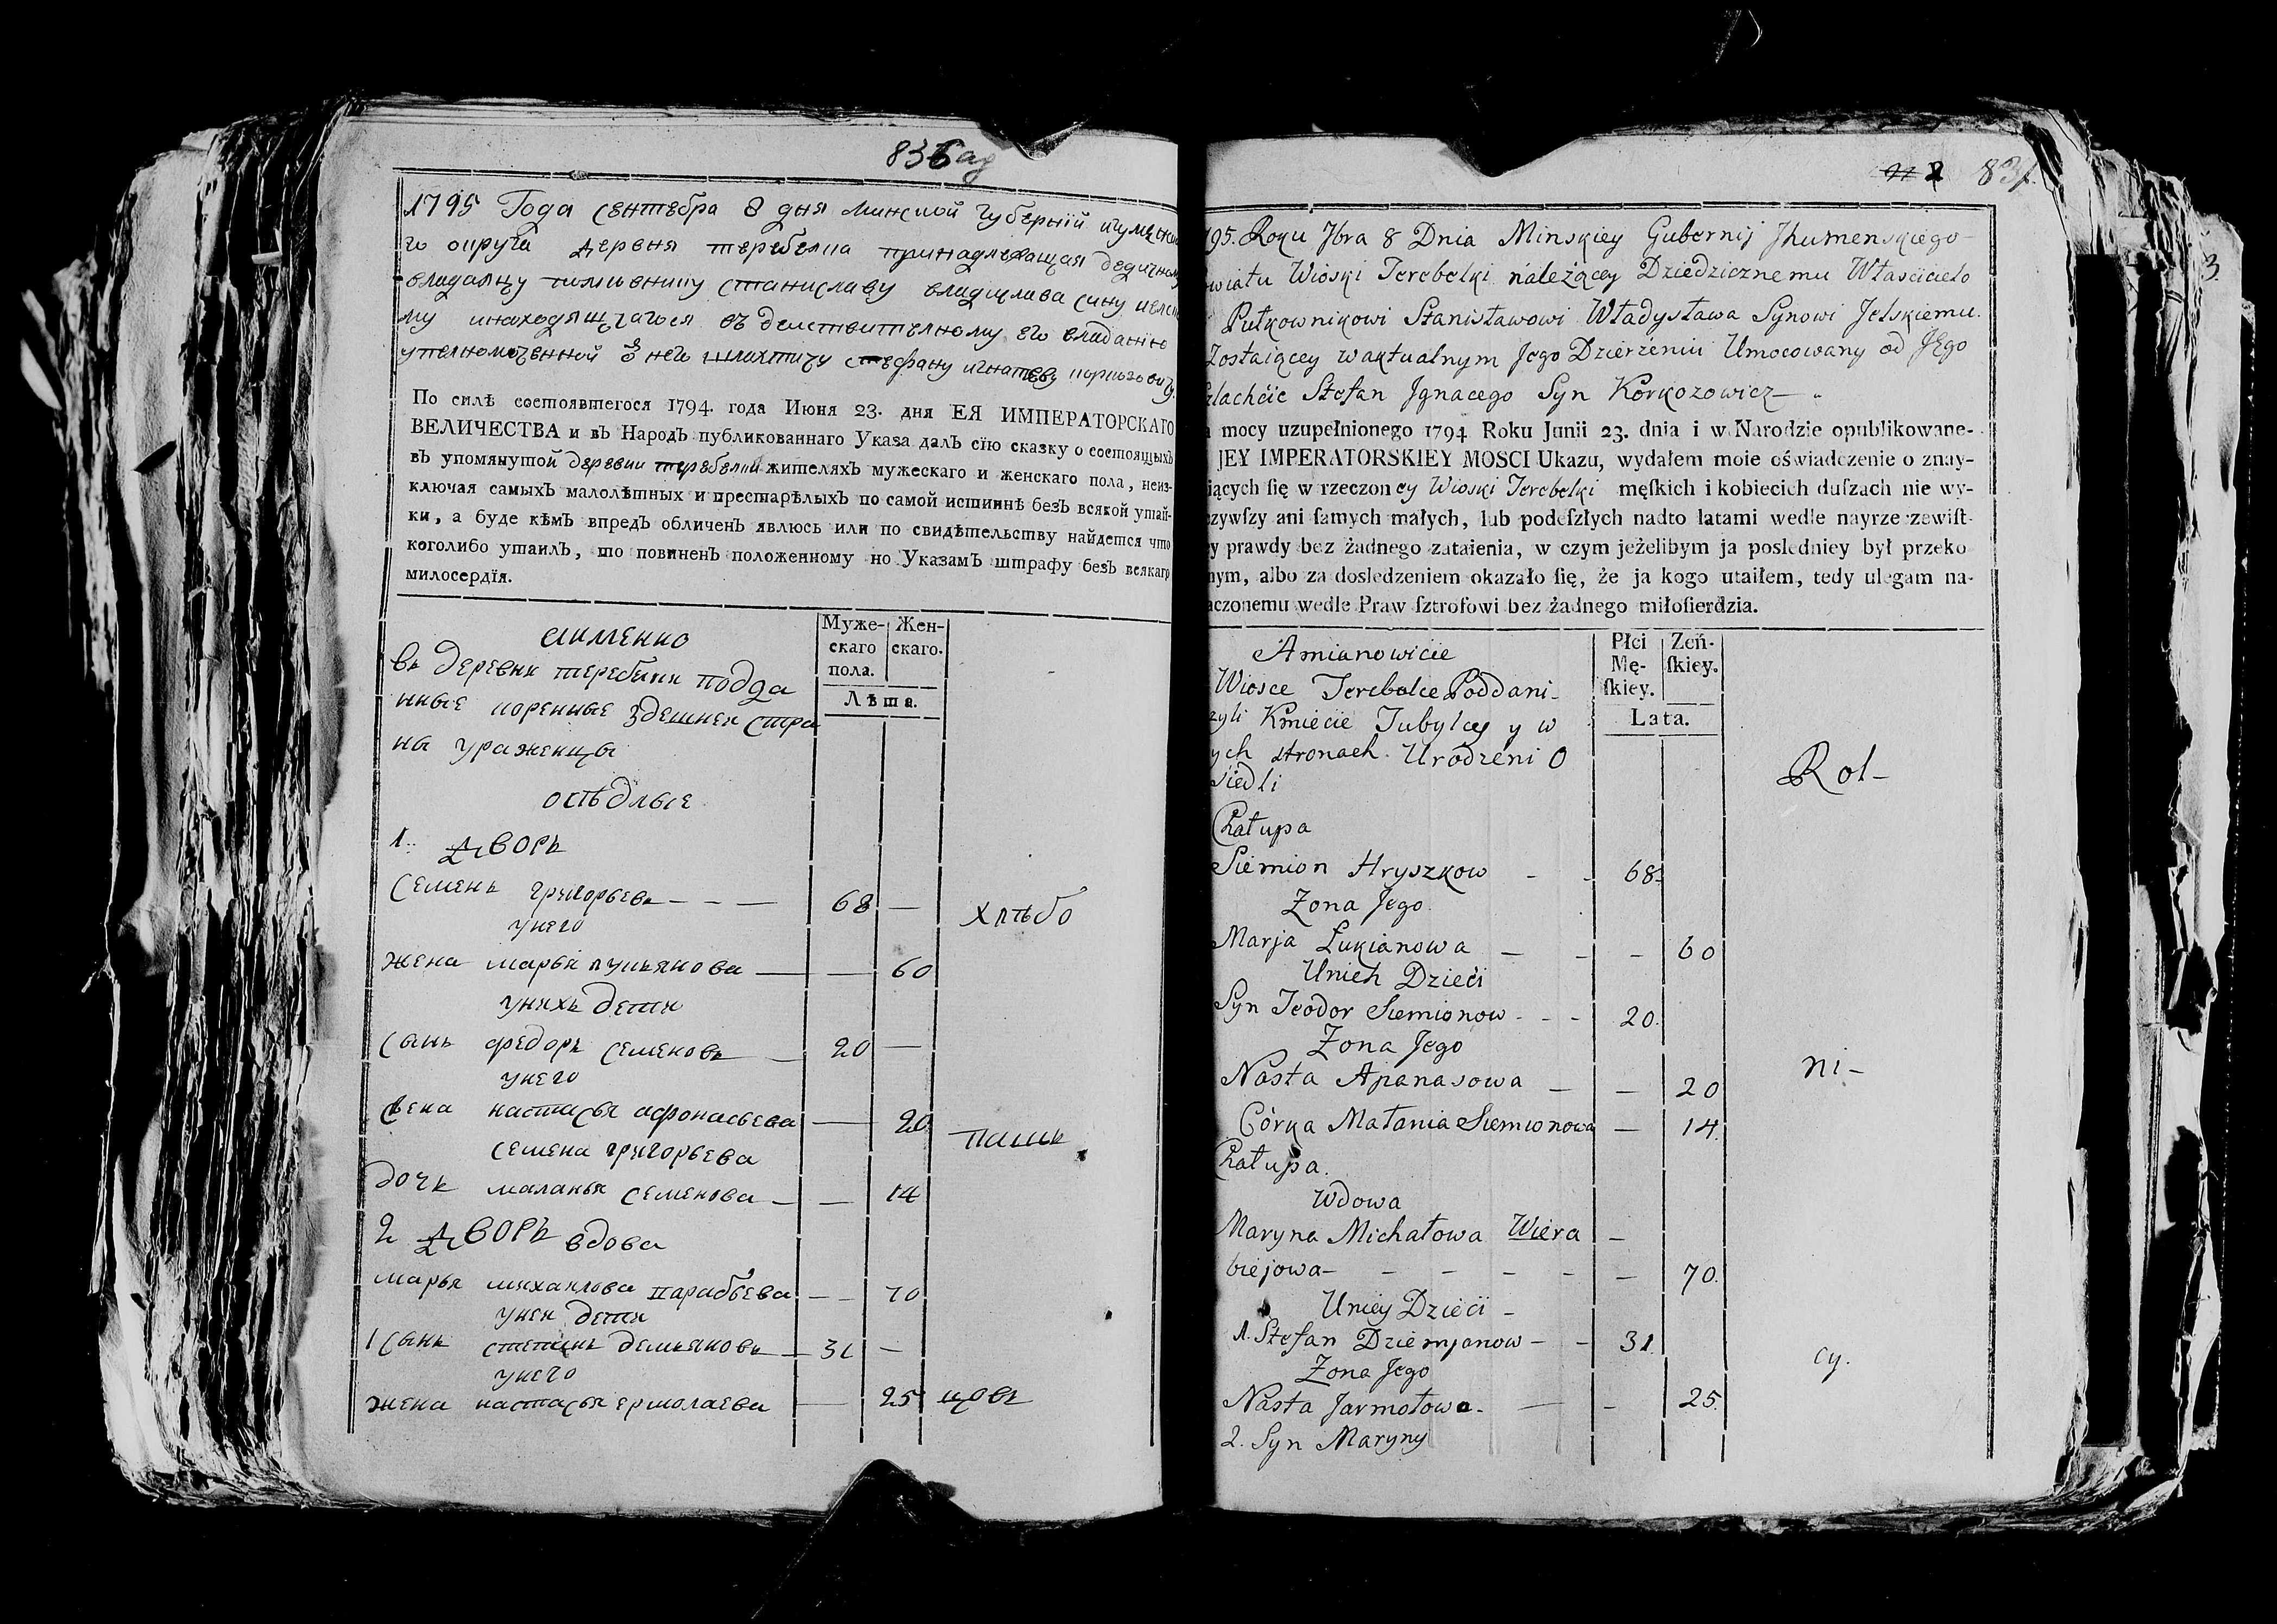 836 ад
1795 Года сентебра 8 дня минской губернїи игуменска
го округа деревня теребелка принадлежащая дедичному
владелцу полковнику станиславу владислава сину елско
му инаходящегося въ деиствителному его владанїю
уполномоченной ѿ него шляхтичу стефану игнатеву коркозовичу
По силѣ состоявшегося 1794. года Июня 23. дня ЕЯ ИМПЕРАТОРСКАГО
ВЕЛИЧЕСТВА и въ Народъ публикованнаго Указа далъ сїю сказку о состоящихъ
въ упомянутой деревни теребелки жителяхъ мужескаго и женскаго пола, неиз-
ключая самыхъ малолѣтныхъ и престарѣлыхъ по самой истиннѣ безъ всякой утай-
ки, а буде кѣмъ впредь обличенъ явлюсь или по свидѣтельству найдется что
коголибо утаилъ, то повиненъ положенному по Указамъ штрафу безъ всякаго
милосердїя.
Муже- Жен-
скаго скаго.
пола.
Лѣта.
аименно
въ деревни теребелки подда
нные коренные здешнеи стра
ны уроженцы
оседлые
1. дворъ
Семенъ григорьевъ - - - 68 —
унего
жена марья лукьянова — — 60
унихъ дети
сынъ федоръ семеновъ — 20 —
унего
жена настасья афонасьева — 20
семена григорьева
дочь маланья семенова — — 14
2 дворъ вдова
марья михаилова парабьева — — 70
унеи дети
1 сынъ степанъ демьяновъ — 31 —
унего
жена настасья ермолаева — 25
хлѣбо
паш
цовъ
2 831
795. Roku 7bra 8 Dnia Minskiey Gubernij Jhumenskiego
owiatu Wioski Terebelki należącey Dziedzicznemu Własciciclo
Pułkownikowi Stanisławowi Władysława Synowi Jelskiemu.
Zostaiącey w aktualnym Jego Dzierżeniu Umocowany od Jego
zlachćic Stefan Jgnacego Syn Korkozowicz
a mocy uzupełnionego 1794 Roku Junii 23. dnia i w Narodzie opublikowane-
JEY IMPERATORSKIEY MOSCI Ukazu, wydałem moie oświadczenie o znay-
iących ſię w rzeczoney Wioski Terebelki męſkich i kobiecich duſzach nie wy-
czywſzy ani ſamych małych, lub podeſzłych nadto latami wedle nayrzezewiſt-
ey prawdy bez żadnego zataienia, w czym jeżelibym ja posledniey był przeko
nym, albo za dosledzeniem okazało ſię, że ja kogo utaiłem, tedy ulegam na-
aczonemu wedle Praw ſztrofowi bez żadnego miłoſierdzia.
Płci Zeń-
Mę- ſkiey.
ſkiey.
Lata.
Amianowicie
Wiosce Terebelce Poddani
zyli Kmiecie Tubylcy y w
ych stronach Urodzeni O
siedli
Chałupa
Siemion Hryszkow - - 68
Zona Jego
Marja Łukianowa — - - 60
Unich Dzieci
Syn Teodor Siemionow - - - 20.
Zona Jego
Nasta Apanasowa — — 20
Córka Małania Siemionowa — 14.
Chałupa.
Wdowa
Maryna Michałowa Wiera —
biejowa - - - - - — 70.
Uniey Dzieci -
1. Stefan Dziemjanow - - 31.
Zona Jego
Nasta Jarmołowa. — - 25.
2. Syn Maryny
Rol-
ni-
cy.